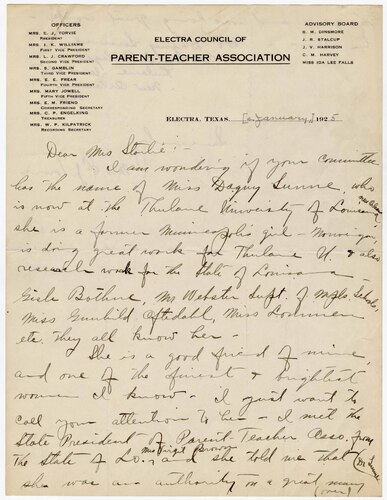 OFFICERS
MRS. E. J. TORVIE
PRESIDENT
MRS. I. K. WILLIAMS
FIRST VICE PRESIDENT
MRS. L. J. CRAWFORD
SECOND VICE PRESIDENT
MRS. S. GAMBLIN
THIRD VICE PRESIDENT
MRS. E. E. FREAR
FOURTH VICE PRESIDENT
MRS. MARY JOWELL
FIFTH VICE PRESIDENT
MRS. E. M. FRIEND
CORRESPONDING SECRETARY
MRS. C. P. ENGELKING
TREASURER
MRS. W. P. KILPATRICK
RECORDING SECRETARY
ELECTRA COUNCIL OF
PARENT-TEACHER ASSOCIATION
ADVISORY BOARD
S. M. DINSMORE
J. R. STALCUP
J. V. HARRISON
C. M. HARVEY
MISS IDA LEE FALLS
ELECTRA, TEXAS, [January] 1925
Dear Mrs :-
I am wondering if your committee
has the name of Miss Dagny Sunne, who
is now at the Thulane University of Louisiana
she is a former Minneapolis girl - Norwegian
is doing great work for Thulane U. & also
research work for the State of Louisiana -
Gisle Bothne, Mr Webster Supt. of Mpls Schools,
Miss Gunhild Aftedahl, Miss
etc. they all know her -
She is a good friend of mine,
and one of the finest & brightest
women I know - I just want to
call your attention to her - I met the
State President of Parent-Teacher Asso. from
the State of La., Mrs Brown and she told me that (Dr Sunne)
she was an authority on a great many
(over)